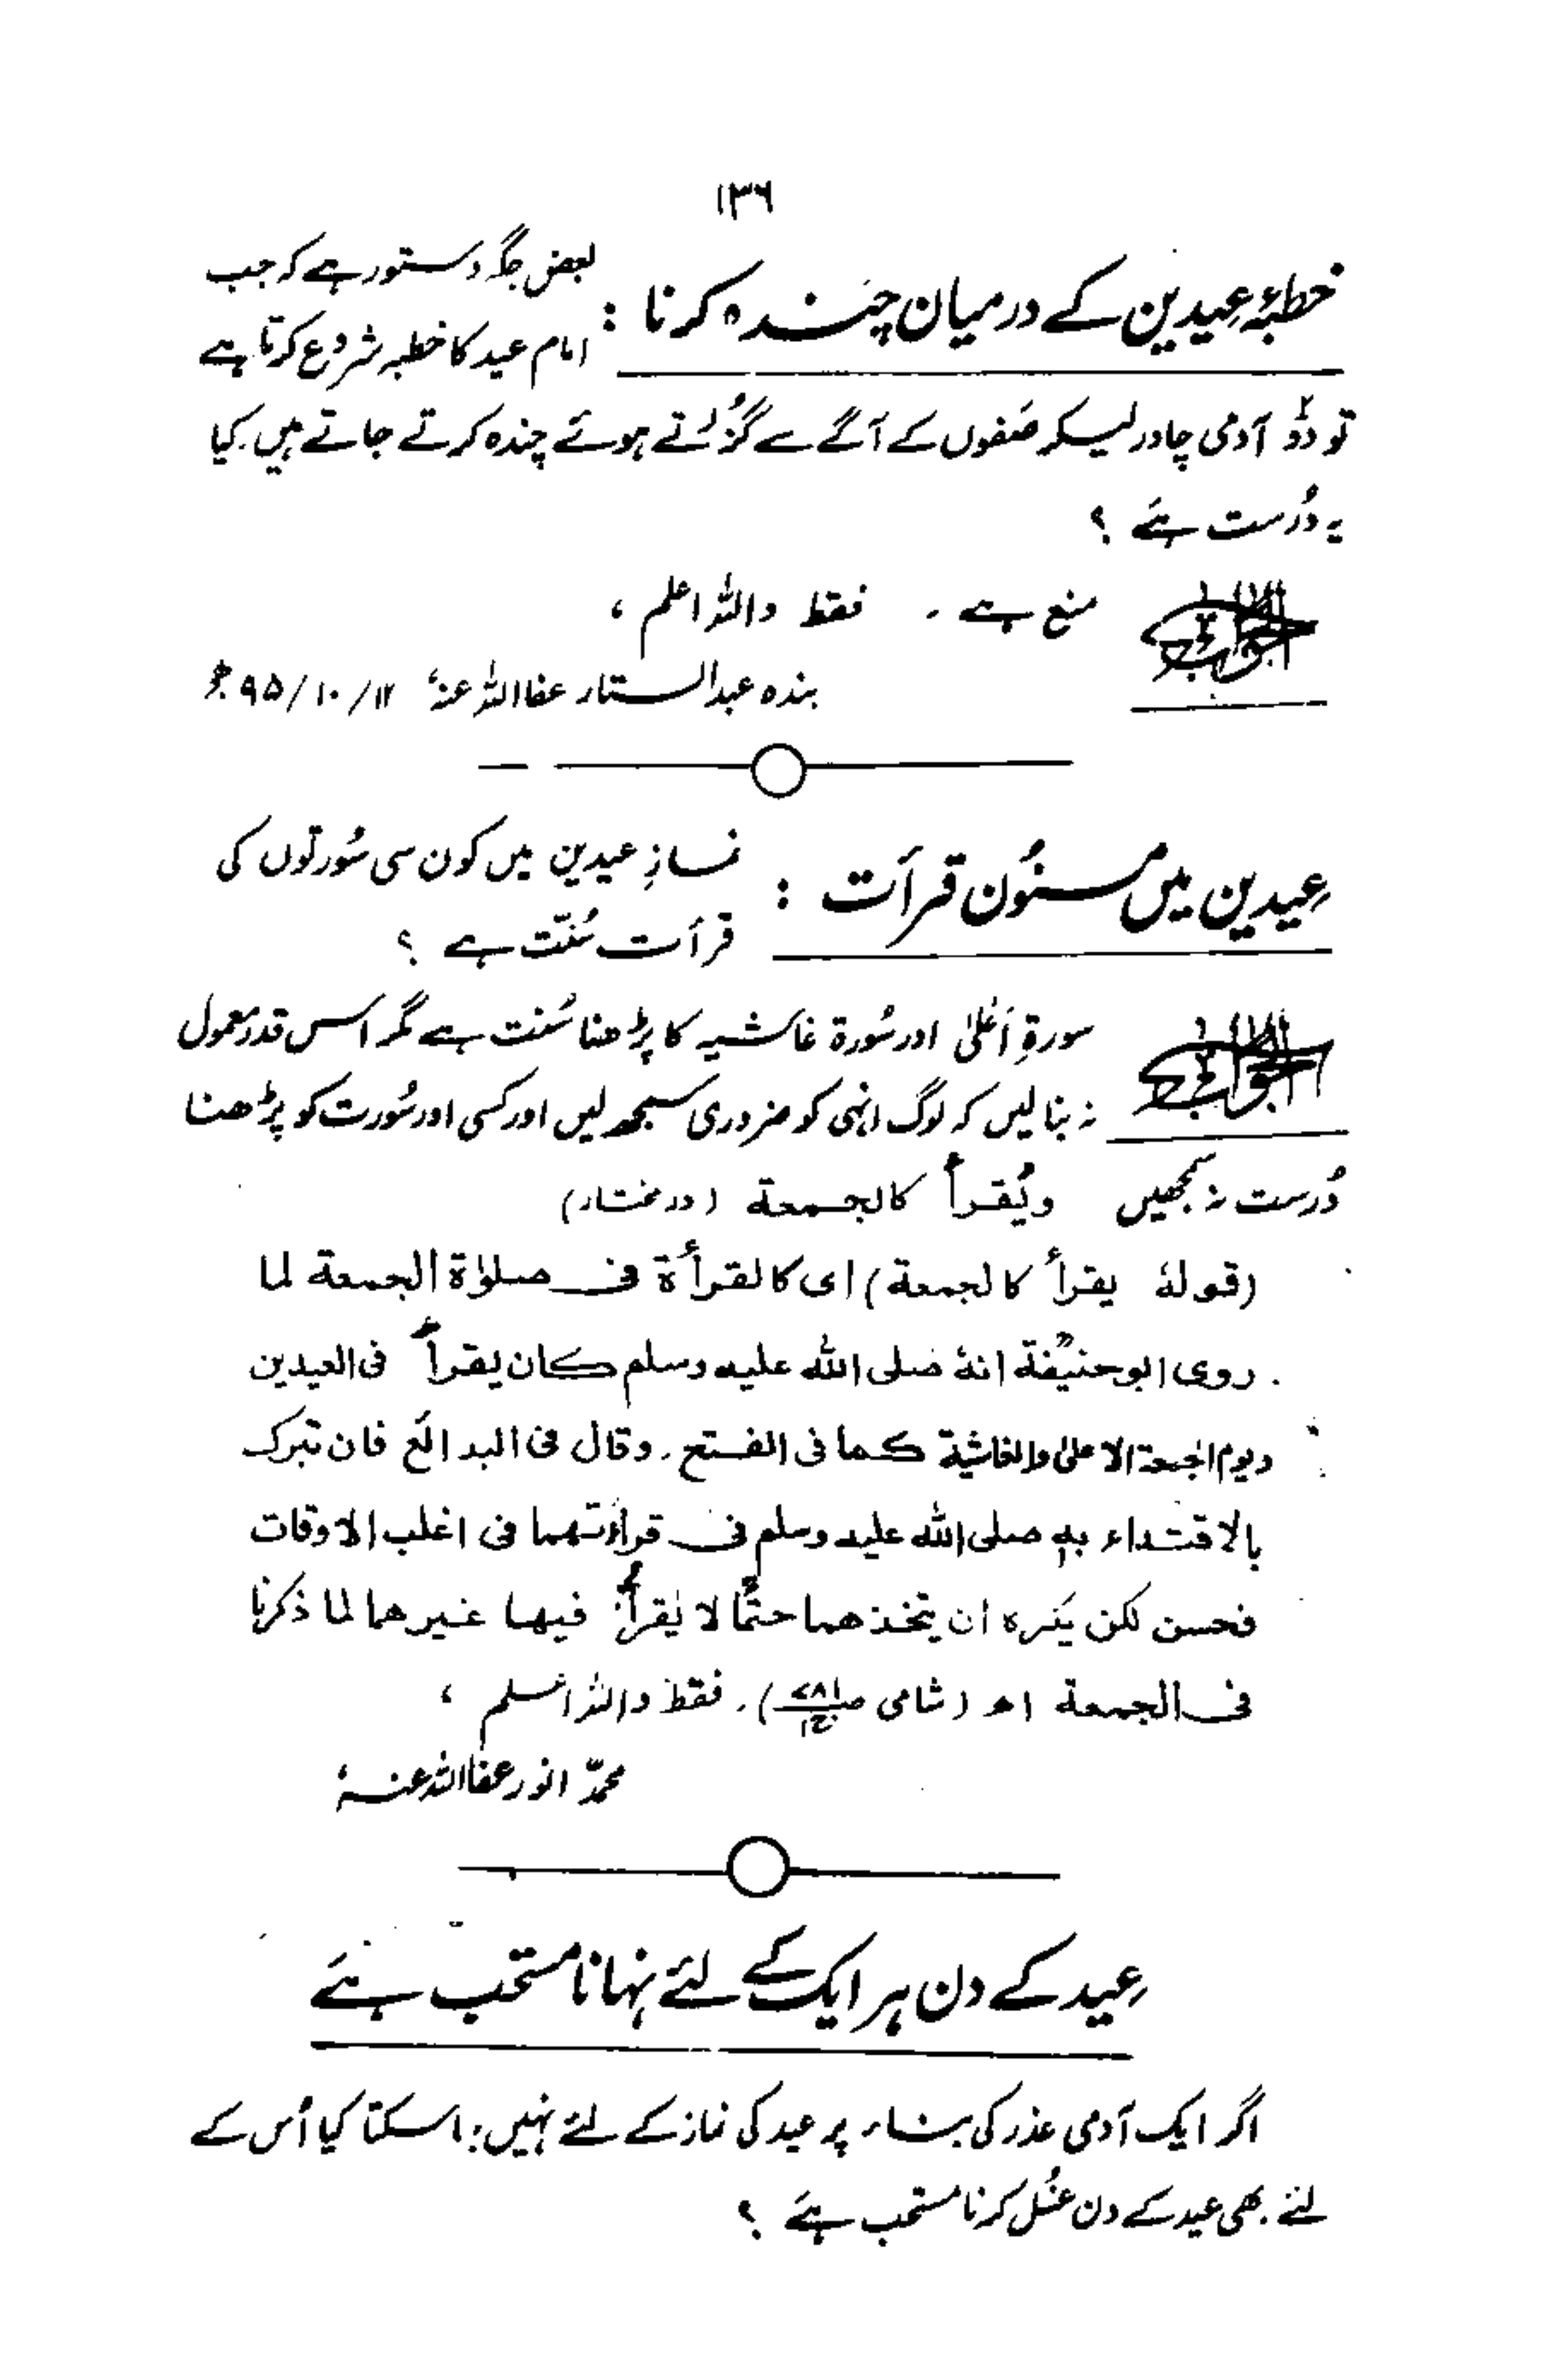 ۱۳۶
خطبۂ عیدین کے درمیان چندہ کرنا : بعض جگہ دستور ہے کہ جب
امام عید کا خطبہ شروع کرتا ہے
تو دو آدمی چادر لیکر صفوں کے آگے سے گزُرتے ہوئے چندہ کرتے جاتے ہیں . کیا
یہ دُرست ہے ؟
الجواب منع ہے ۔ فقط واللہ اعلم ،
بندہ عبدالستار عفا اللہ عنہٗ ۱۲/۱۰/۹۵ھ
عیدین میں مسنُون قرأت : نمازِ عیدین میں کون سی سُورتوں کی
قرأت سُنّت ہے ؟
الجواب سورۃِ اَعلیٰ اور سُورۃ غاشیہ کا پڑھنا سُنت ہے مگر اسس قدر معمول
نہ بنا لیں کہ لوگ انہی کو ضروری سمجھ لیں اور کسی اور سُورت کو پڑھنا
دُرست نہ سمجھیں ویُقرأ کالجمعة (درمختار)
(قولهٗ یقرأ کالجمعة) ای کالقرأۃ فی صلوٰۃ الجمعة لما
روی ابوحنیفة انهٗ صلی الله علیه وسلم کان یقرأ فی العیدین
ویوم الجمعة الاعلیٰ والغاشیة کما فی الفتح . وقال فی البدائع فان تبرک
بالاقتداء به صلی الله علیه وسلم فی قراءتهما فی اغلب الاوقات
فحسن لکن یکره ان یتخذهما حتمًا لا یُقرأ فیها غیرهما لما ذکرنا
فی الجمعة اھ (شامی ج۱) ۔ فقط واللہ اعلم ،
محمدّ انور عفا اللہ عنہٗ
عِید کے دن ہر ایک کے لئے نہانا مستحب ہے
اگر ایک آدمی عذر کی بناء پر عید کی نماز کے لئے نہیں جا سکتا کیا اُس کے
لئے بھی عید کے دن غُسل کرنا مستحب ہے ؟